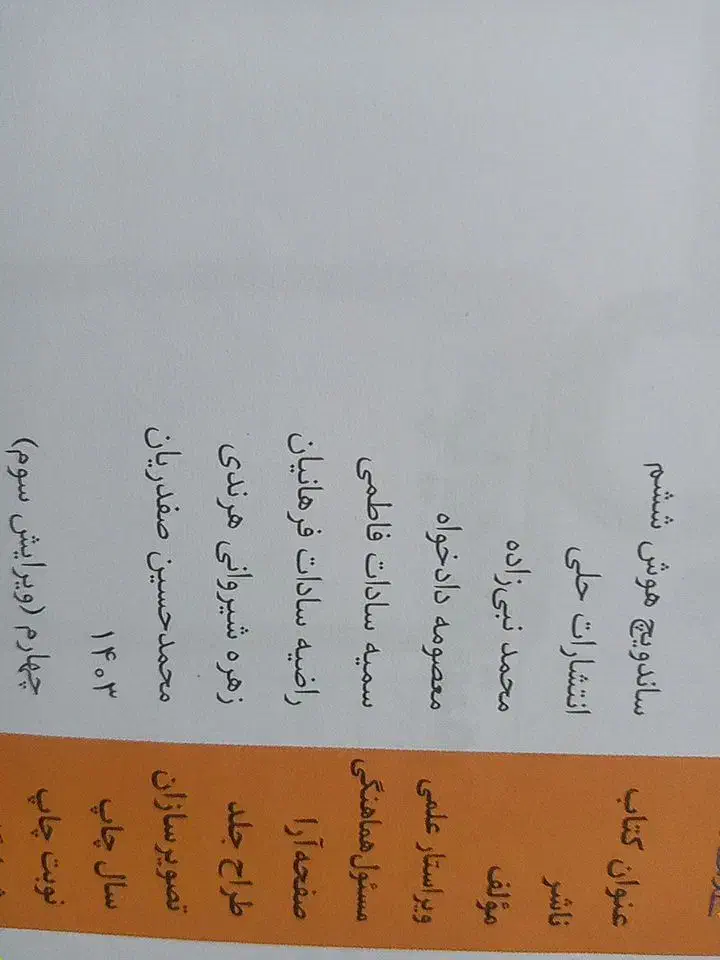 عنوان کتاب ساندویچ هوش ششم
ناشر انتشارات حلی
مؤلف محمد نبی‌زاده
ویراستار علمی معصومه دادخواه
مسئول هماهنگی سمیه سادات فاطمی
صفحه‌آرا راضیه سادات فرهانیان
طراح جلد زهره شیروانی هرندی
تصویرسازان محمدحسین صفدریان
سال چاپ ۱۴۰۳
نوبت چاپ چهارم (ویرایش سوم)